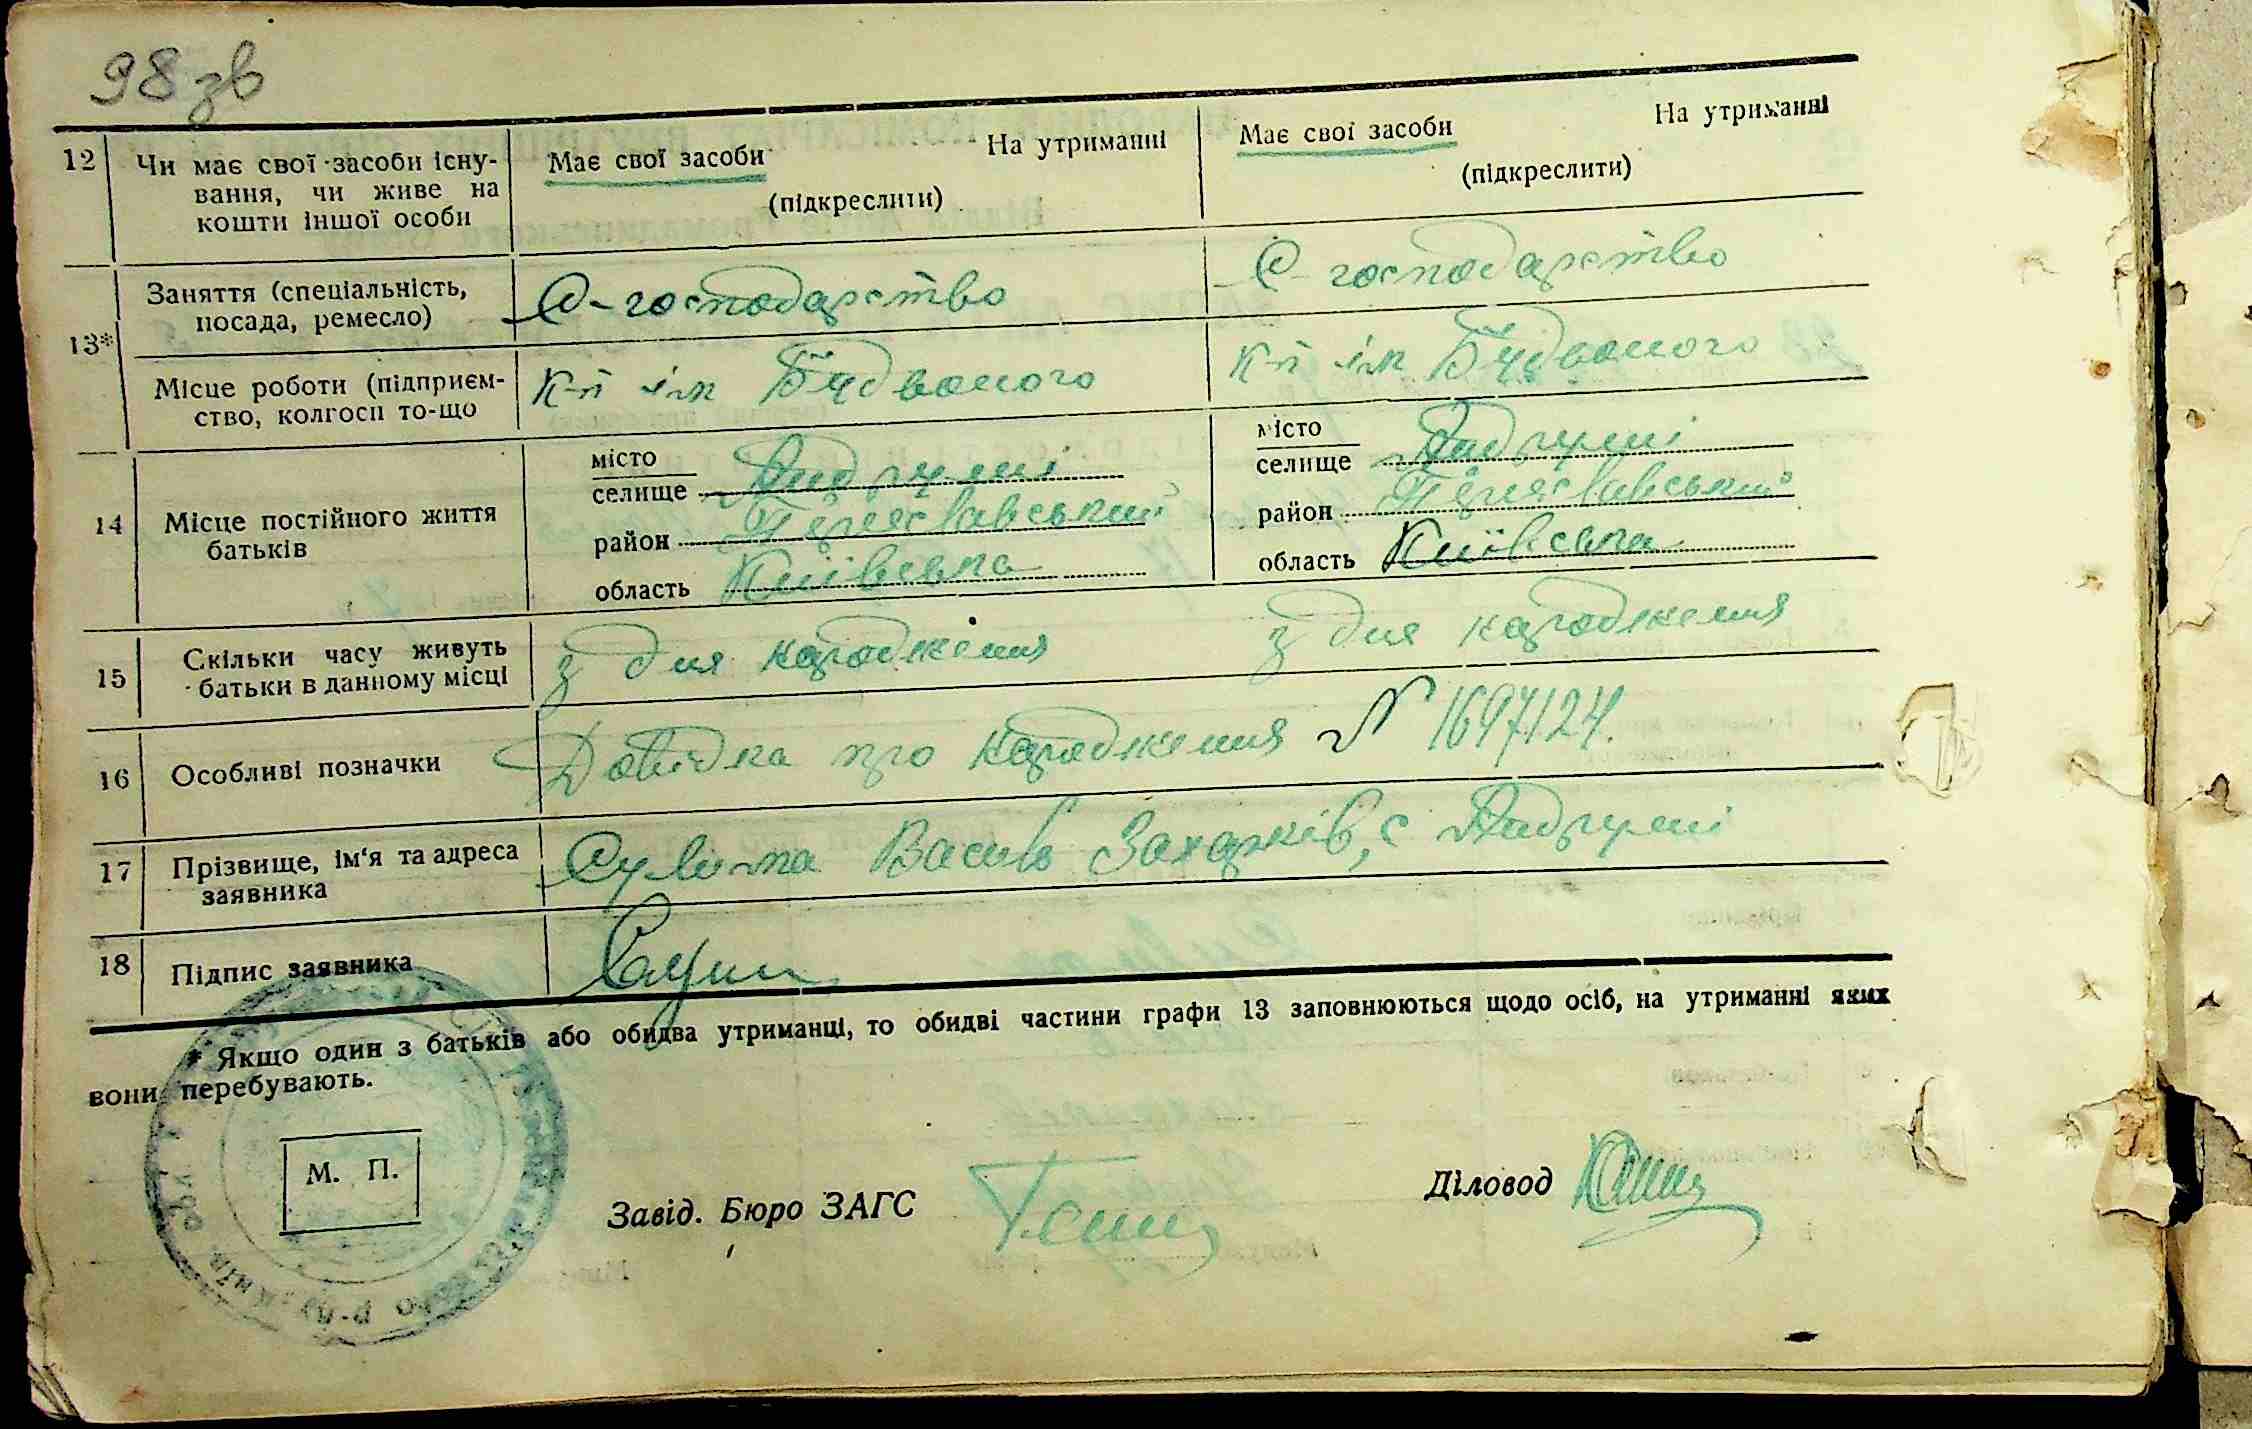 98 зв
12 Чи має свої засоби існу- Має свої засоби На утриманні Має свої засоби На утриманні
вання, чи живе на (підкреслити) (підкреслити)
кошти іншої особи
13* Заняття (спеціальність, С-господарство С-господарство
посада, ремесло)
Місце роботи (підприєм- К-п ім Будьоного К-п ім Будьоного
ство, колгосп то-що
14 Місце постійного життя батьків
місто
селище
район Переяславський
область Київська
місто
селище
район Переяславський
область Київська
15 Скільки часу живуть з дня народження з дня народження
батьки в данному місці
16 Особливі позначки Довідка про народження N 1697124.
17 Прізвище, ім'я та адреса Сулима Василь Захарків, с
заявника
18 Підпис заявника
* Якщо один з батьків або обидва утриманці, то обидві частини графи 13 заповнюються щодо осіб, на утриманні яких
вони перебувають.
М. П.
Завід. Бюро ЗАГС
Діловод